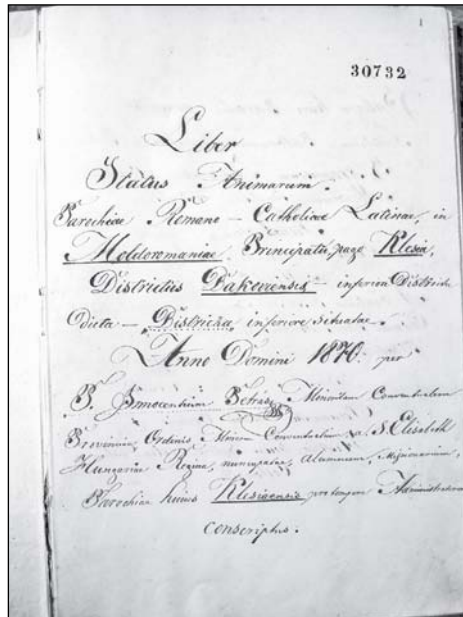 1
30732
Liber
Status Animarum.
Parochiae Romano - Catholicae Latinae, in
Moldoromaniae Principatu, pago Klesia,
Districtus Bakoviensis - inferiori Districtu
dicta - Bistricza inferiore situatae.
Anno Domini 1870. per
P. Innocentium Petrás Minoritam Conventualem
Provinciae, Ordinis Minorum Conventualium a S. Elisabeth
Hungariae Regina, nuncupatae, alumnum, Missionarium,
Parochiae huius Klesiaensis pro tempore Administratorem
conscriptus.